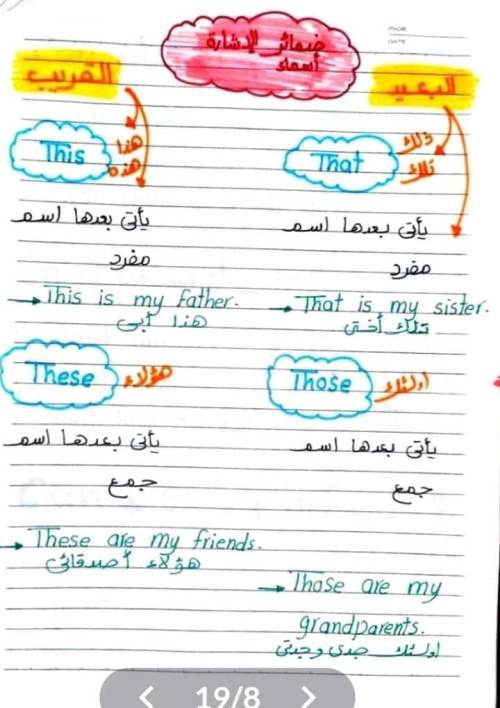 PAGE
DATE
ضمائر الإشارة
أسماء
القريب
البعيد
This
هذا
هذه
That
ذلك
تلك
يأتى بعدها اسم
مفرد
This is my father.
هذا أبى
يأتى بعدها اسم
مفرد
That is my sister.
تلك أختى
These
هؤلاء
Those
اولئك
يأتى بعدها اسم
جمع
These are my friends.
هؤلاء أصدقائى
يأتى بعدها اسم
جمع
Those are my
grandparents.
اولئك جدى وجدتى
19/8